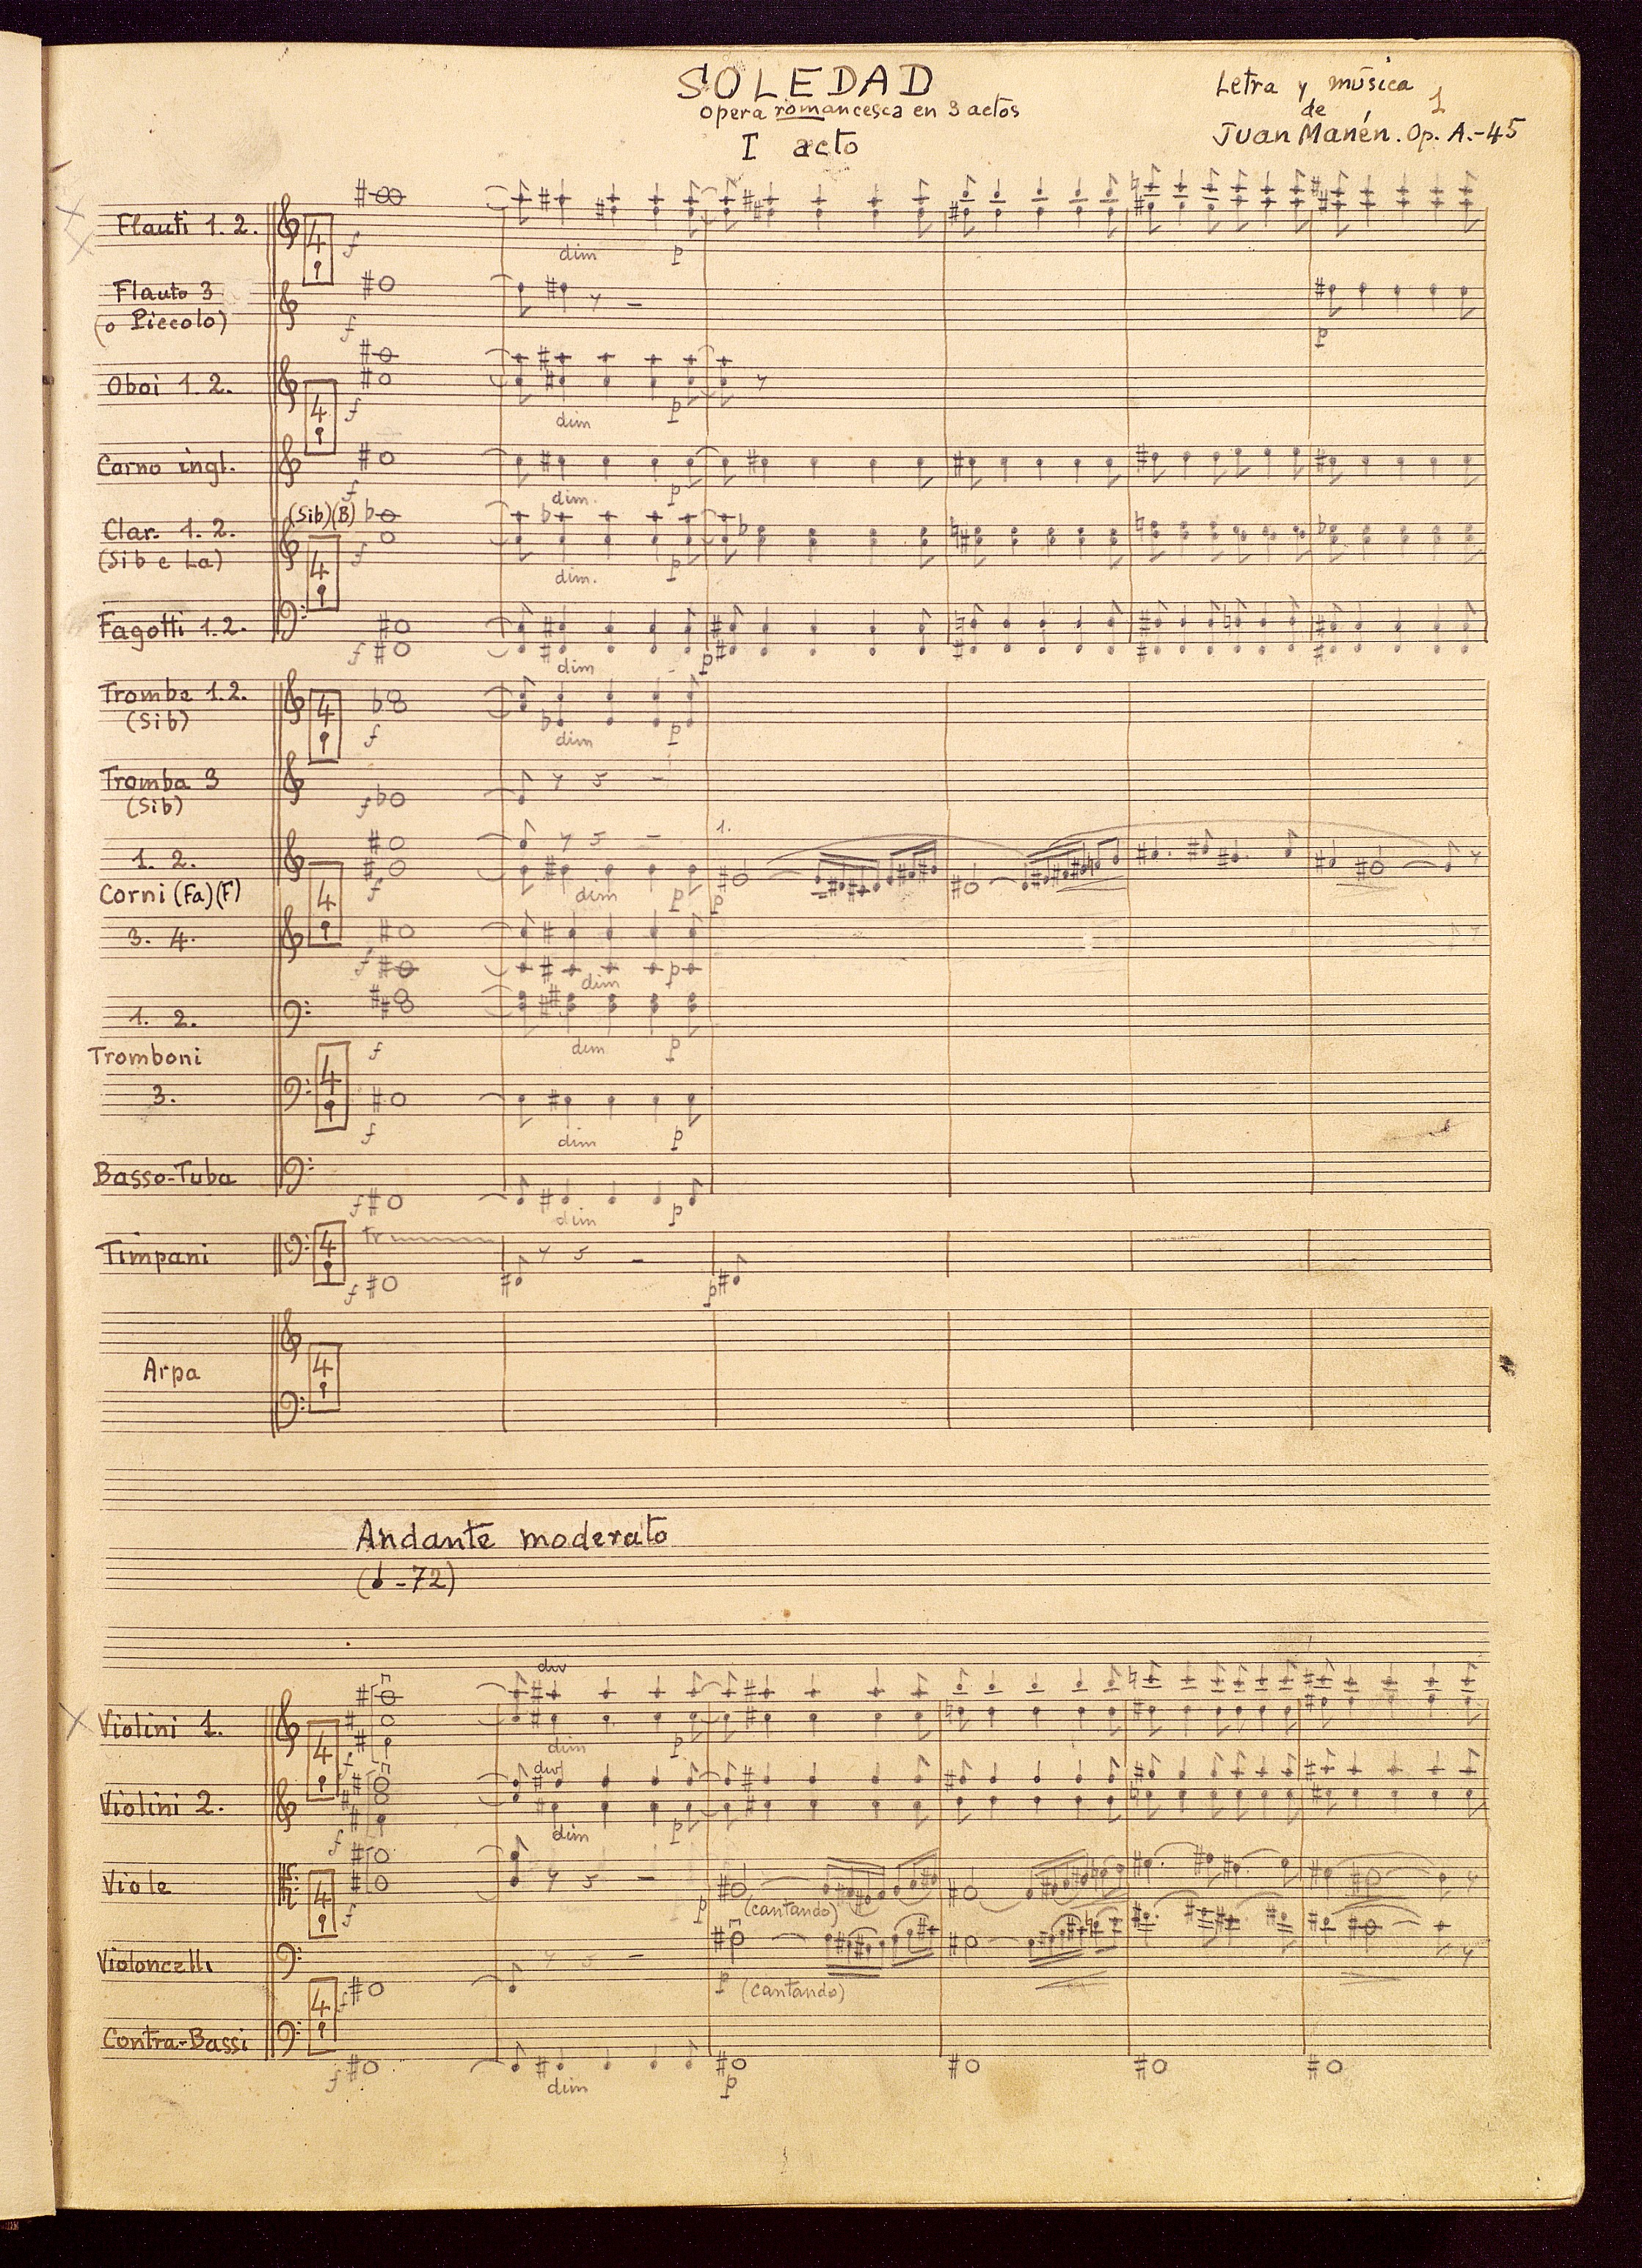 SOLEDAD
opera romancesca en 3 actos
I acto
Letra y música
de
Juan Manén. Op. A.-45
1
Flauti 1. 2.
4
f
dim
p
Flauto 3
(o Piccolo)
f
p
Oboi 1. 2.
4
f
dim
p
Corno ingl.
f
dim.
p
Clar. 1. 2.
(Sib e La)
(Sib) (B)
4
f
dim.
p
Fagotti 1. 2.
f
dim
p
Trombe 1. 2.
(Sib)
4
f
dim
p
Tromba 3
(Sib)
f
1. 2.
1.
f
dim
p
p
Corni (Fa) (F)
4
3. 4.
f
dim
p
1. 2.
f
dim
p
Tromboni
4
3.
f
dim
p
Basso-Tuba
f
dim
p
Timpani
4
tr
f
p
Arpa
4
Andante moderato
(♩ - 72)
div
Violini 1.
4
f
dim
p
div
Violini 2.
f
dim
p
Viole
4
f
p
(cantando)
Violoncelli
f
p
(cantando)
4
Contra-Bassi
f
dim
p